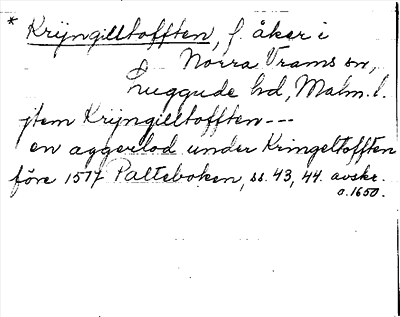 * Krÿngilltofften, f. åker i
Norra Vrams sn,
Luggude hd, Malm. l.
jtem Krÿngilltofften ---
en aggerlod under Kringeltofften
före 1517 Palteboken, ss. 43, 44. avskr.
o. 1650.